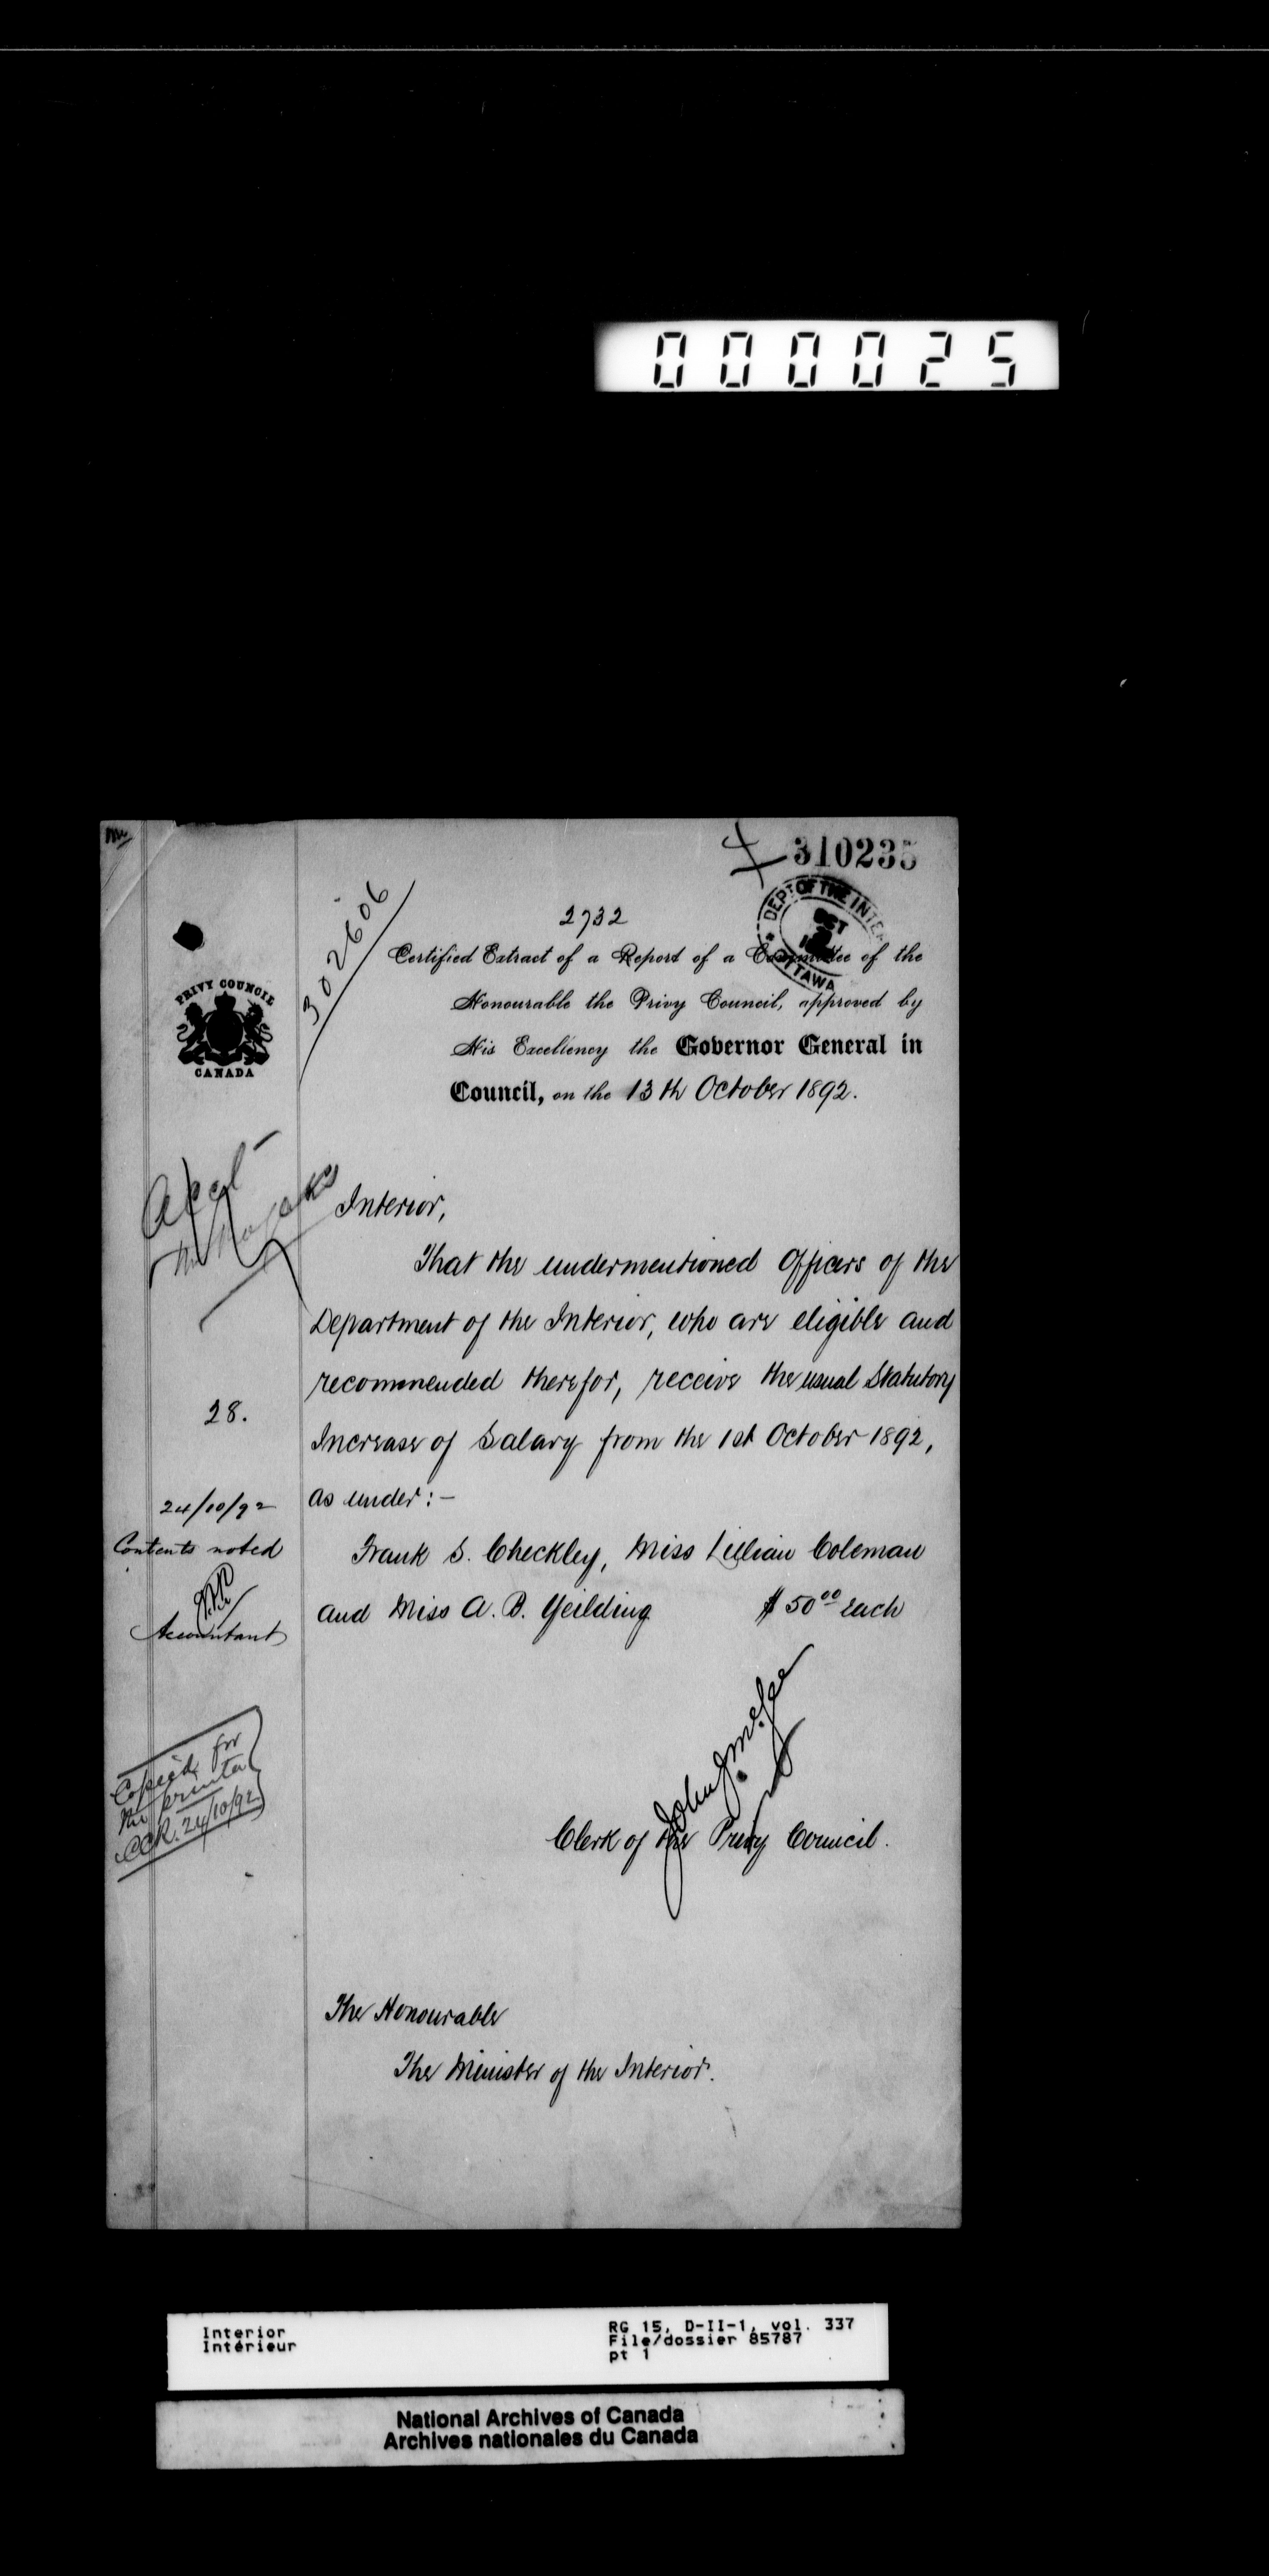 000025
310235
2732
302606
DEPT OF THE INTE
OCT
OTTAWA
PRIVY COUNCIL
CANADA
Certified Extract of a Report of a Committee of the
Honourable the Privy Council, approved by
His Excellency the Governor General in
Council, on the 13th October 1892.
Interior,
That the undermentioned Officers of the
Department of the Interior, who are eligible and
recommended therefor, receive the usual Statutory
Increase of Salary from the 1st October 1892,
as under:-
28.
24/10/92
Contents noted
Accountant
Frank S. Checkley, Miss Lillian Coleman
and Miss A. B. Yeilding $50.00 each
John J. McGee
Clerk of the Privy Council.
Copied for
the printer
CCR. 24/10/92
The Honourable
The Minister of the Interior.
Interior
Intérieur
RG 15, D-II-1, vol. 337
File/dossier 85787
pt 1
National Archives of Canada
Archives nationales du Canada